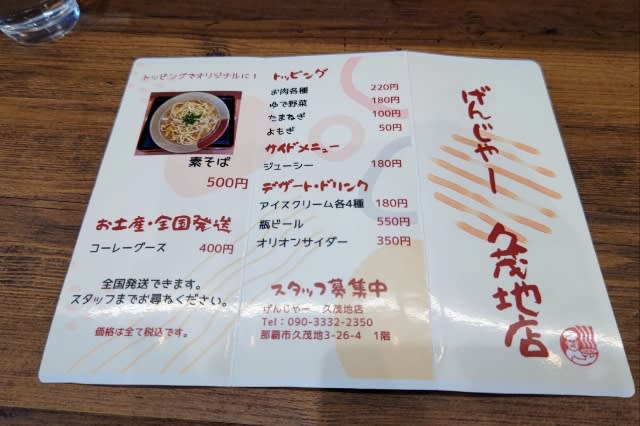 トッピングでオリジナルに！
素そば
500円
お土産・全国発送
コーレーグース 400円
全国発送できます。
スタッフまでお尋ねください。
価格は全て税込です。
トッピング
お肉各種 220円
ゆで野菜 180円
たまねぎ 100円
よもぎ 50円
サイドメニュー
ジューシー 180円
デザート・ドリンク
アイスクリーム各4種 180円
瓶ビール 550円
オリオンサイダー 350円
スタッフ募集中
げんじゃー 久茂地店
Tel：090-3332-2350
那覇市久茂地3-26-4 1階
げんじゃー
久茂地店